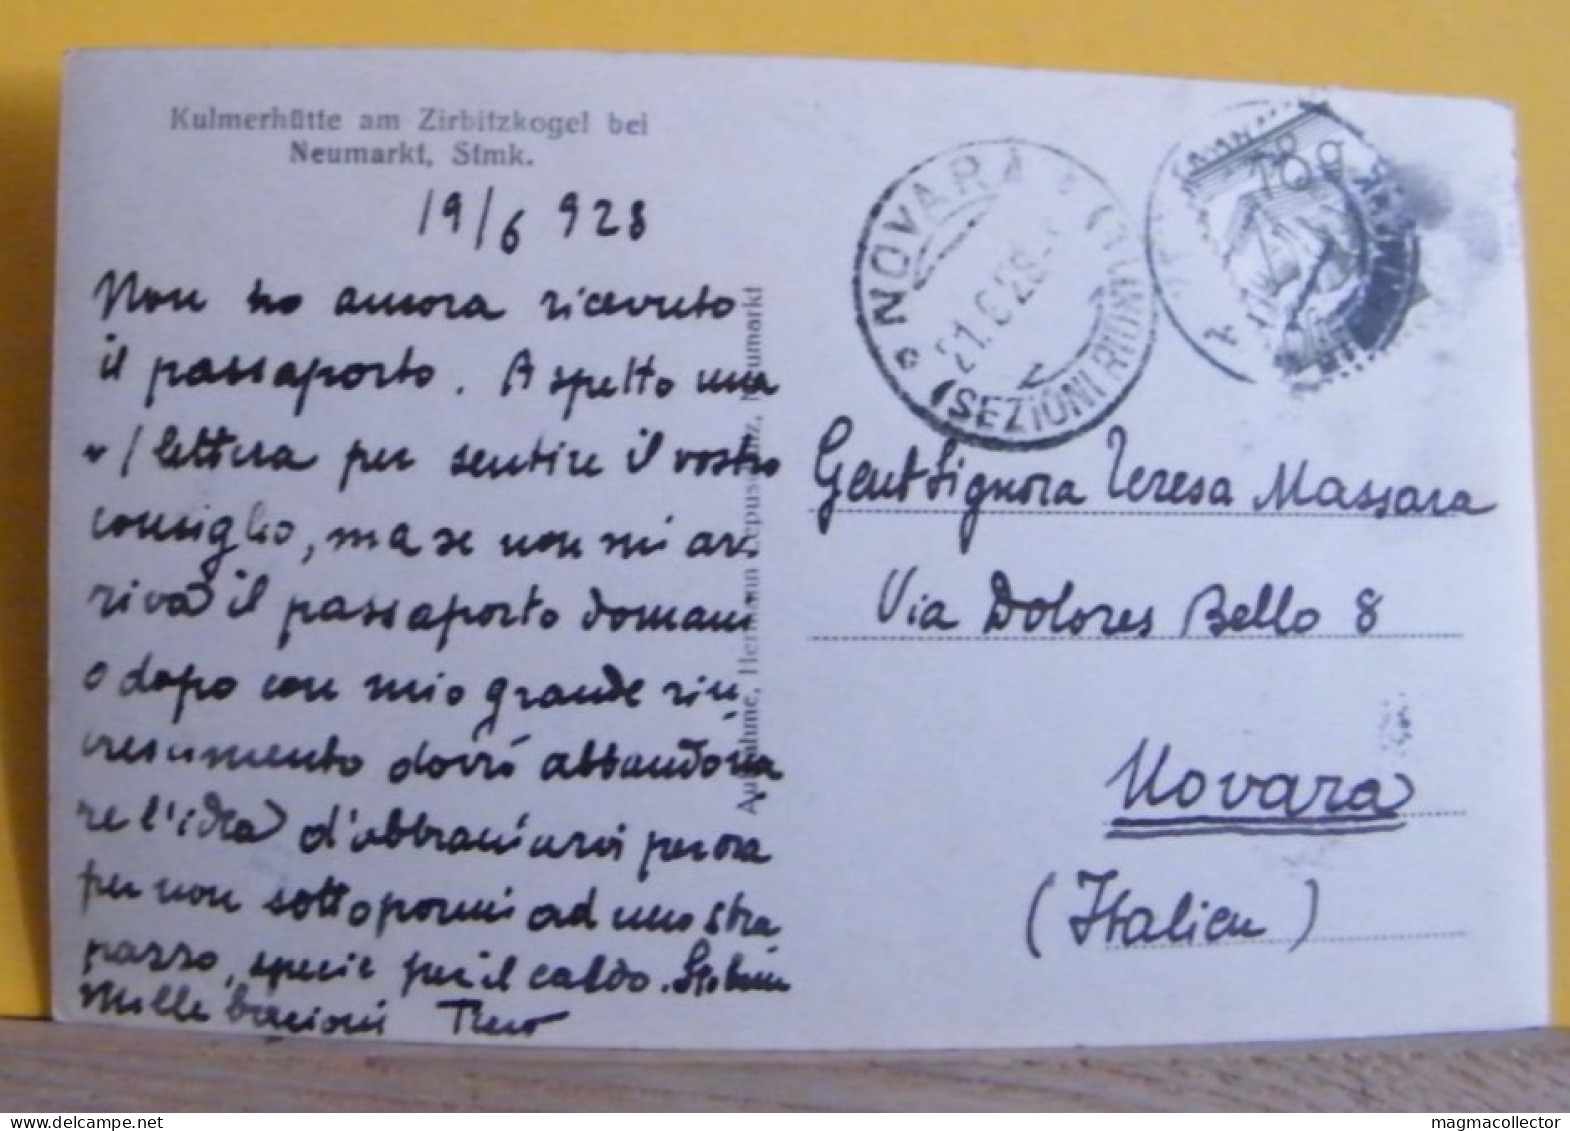 Kulmerhütte am Zirbitzkogel bei
Neumarkt, Stmk.
19/6 928
Non ho ancora ricevuto
il passaporto. Aspetto una
v/ lettera per sentire il vostro
consiglio, ma se non mi ar-
riva il passaporto domani
o dopo con mio grande rin-
crescimento dovrò abbandona
re l'idea d'abbracciarvi per ora
per non sottopormi ad uno stra
pazzo, specie per il caldo.
Mille bacioni Tino
Aufnahme, Hermann
Neumarkt
NOVARA
21.6.28
(SEZIONI RIUNITE)
18g
Gent Signora Teresa Massara
Via Dolores Bello 8
Novara
(Italien)
delcampe.net
magmacollector